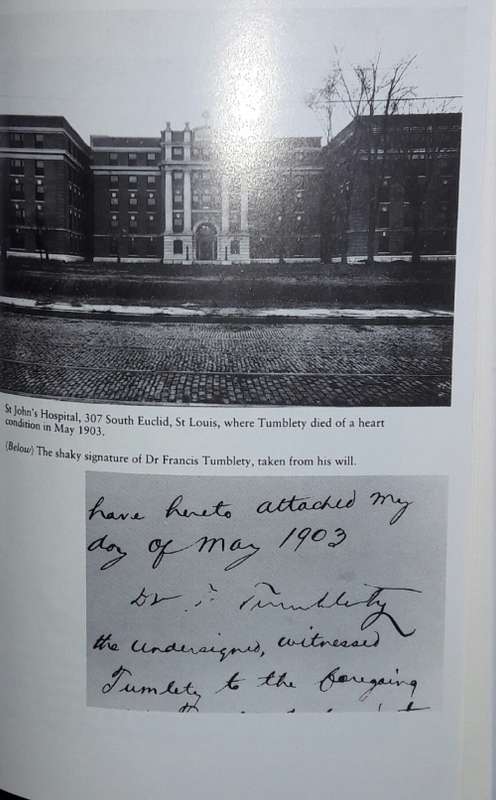 St John's Hospital, 307 South Euclid, St Louis, where Tumblety died of a heart
condition in May 1903.
(Below) The shaky signature of Dr Francis Tumblety, taken from his will.
have hereto attached my
day of May 1903
Dr F. Tumblety
the undersigned, witnessed
Tumlety to the foregoing